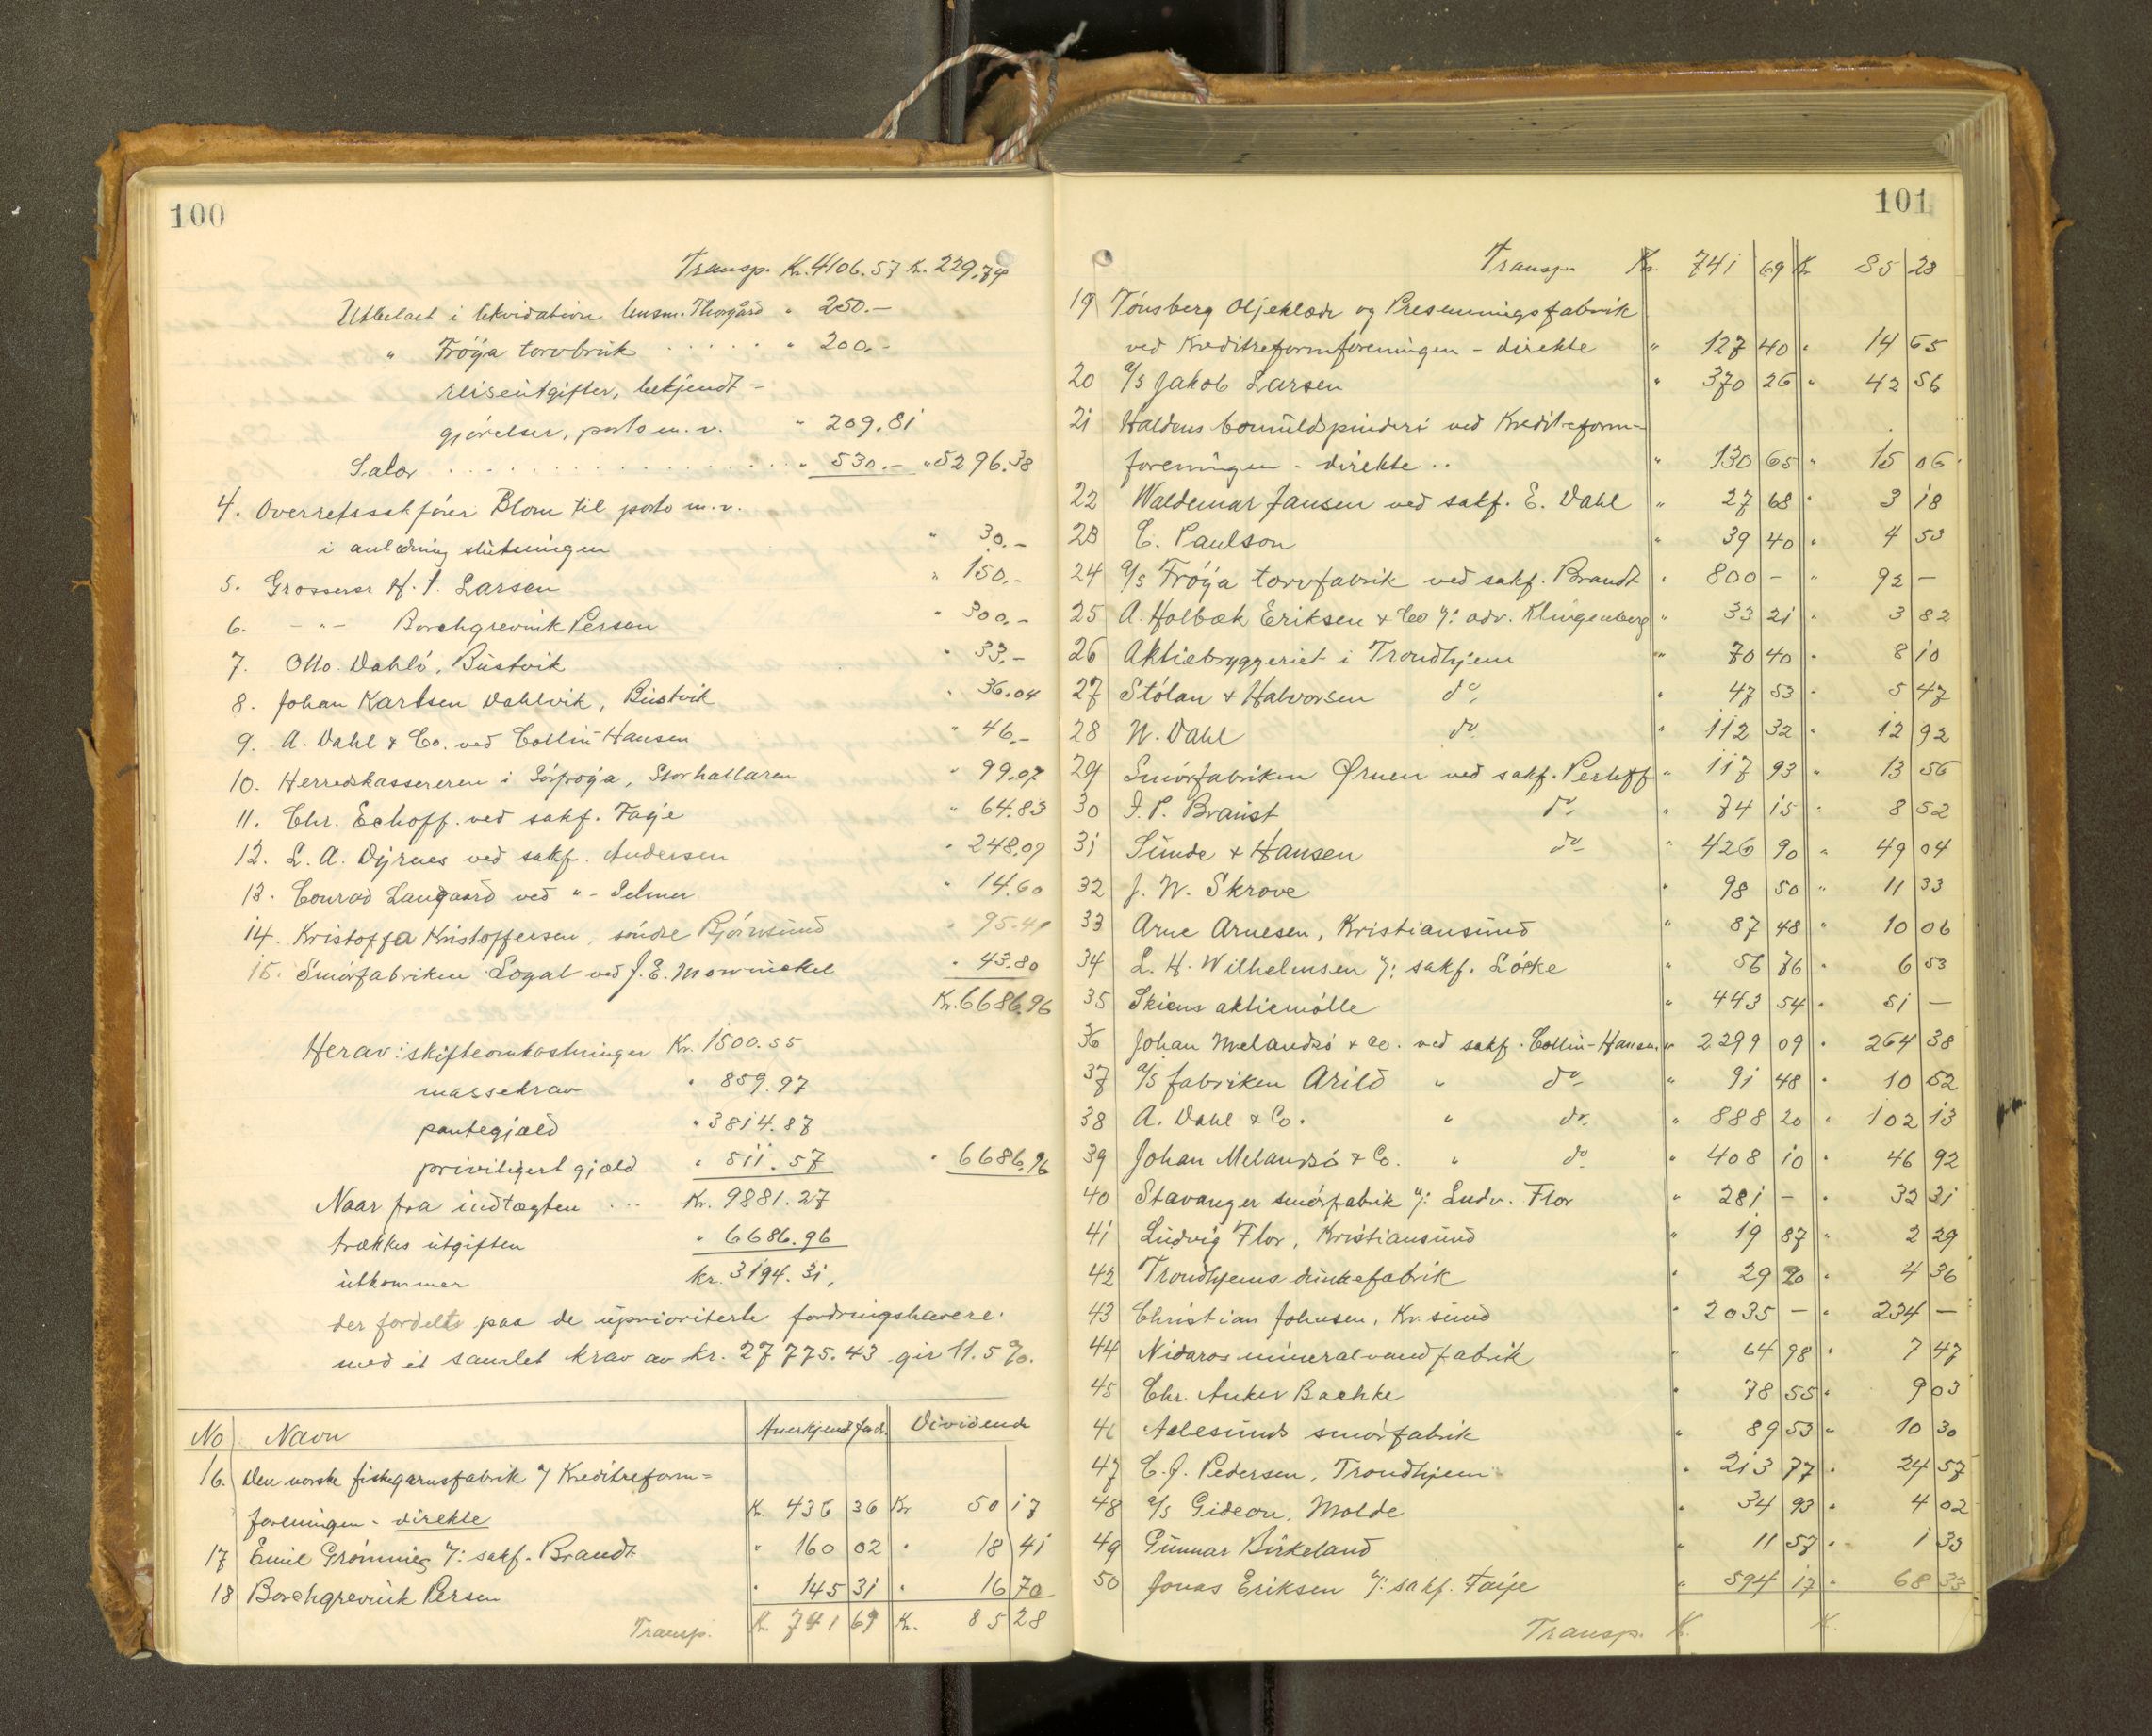 100
Transp. Kr. 4106.57 Kr. 229.74
Utbetalt i likvidation lensm. Thorgård " 250.-
" Frøya torvbruk . . . . . . " 200.-
reiseutgifter, bekjendt=
gjørelser, porto m.v. " 209.81
Salær . . . . . . . . . " 530.- " 5296.38
4. Overretssakfører Blom til porto m.v.
i anledning slutningen " 30.-
5. Grosserer H. f. Larsen " 150.-
6. - " - Borchgrevink Persen " 300.-
7. Otto Dahlø, Bustvik " 33.-
8. Johan Karlsen Dahlvik, Bustvik " 36.04
9. A. Dahl & Co. ved Collin-Hansen " 46.-
10. Herredskassereren i Sørfrøya, Storhallaren " 99.07
11. Chr. Echoff. ved sakf. Faye " 64.83
12. L. A. Dyrnes ved sakf. Andersen " 248.09
13. Conrad Langaard ved " - Selmer " 14.60
14. Kristoffer Kristoffersen, søndre Bjørnsund " 95.41
15. Smørfabriken Loyal ved J. E. Mowinckel " 43.80
Kr. 6686.96
Herav: skifteomkostninger Kr. 1500.55
massekrav " 859.97
pantegjæld " 3814.87
priviligert gjæld " 511.57 " 6686.96
Naar fra indtægten ... Kr. 9881.27
trækkes utgiften " 6686.96
utkommer Kr. 3194.31,
der fordelts paa de uprioriterte fordringshavere.
med et samlet krav av kr. 27775.43 gir 11.5%.
No Navn Anerkjendt fordr. Dividende
16. Den norske fiskegarnsfabrik v/ Kreditreform=
foreningen - direkte Kr. 436 36 Kr 50 17
17 Emil Grømmics v/: sakf. Brandt " 160 02 " 18 41
18 Borchgrevink Persen " 145 31 " 16 70
Transp. Kr. 741 69 Kr. 85 28
101
Transp. Kr. 741 69 Kr 85 28
19 Tønsberg Oljeklæde og Presenningsfabrik
ved Kreditreformforeningen - direkte " 127 40 " 14 65
20 a/s Jakob Larsen " 370 26 " 42 56
21 Haldens bomuldspinderi ved Kreditreform-
foreningen - direkte .. " 130 65 " 15 06
22 Waldemar Jansen ved sakf. E. Dahl " 27 68 " 3 18
23 C. Paulson " 39 40 " 4 53
24 a/s Frøya torvfabrik ved sakf. Brandt " 800 - " 92 -
25 A. Holbæk Eriksen & Co v/: adv. Klingenberg " 33 21 " 3 82
26 Aktiebryggeriet i Trondhjem " 70 40 " 8 10
27 Stølan & Halvorsen do " 47 53 " 5 47
28 W. Dahl do " 112 32 " 12 92
29 Smørfabriken Ørnen ved sakf. Perhoff " 117 93 " 13 56
30 I. P. Braust do " 74 15 " 8 52
31 Sunde & Hansen do " 426 90 " 49 04
32 J. W. Skrove " 98 50 " 11 33
33 Arne Arnesen, Kristiansund " 87 48 " 10 06
34 L. H. Wilhelmsen v/: sakf. Løcke " 56 76 " 6 53
35 Skiens aktiemølle " 443 54 " 51 -
36 Johan Melandsø & Co. ved sakf. Collin-Hansen " 2299 09 " 264 38
37 a/s fabriken Arild " do " 91 48 " 10 52
38 A. Dahl & Co. " do " 888 20 " 102 13
39 Johan Melandsø & Co. " do " 408 10 " 46 92
40 Stavanger smørfabrik v/: Ludv. Flor " 281 - " 32 31
41 Ludvig Flor, Kristiansund " 19 87 " 2 29
42 Trondhjems dunkefabrik " 29 20 " 4 36
43 Christian Johnsen, Kr.sund " 2035 - " 234 -
44 Nidaros mineralvandfabrik " 64 98 " 7 47
45 Chr. Anker Bachke " 78 55 " 9 03
46 Aalesunds smørfabrik " 89 53 " 10 30
47 C. J. Pedersen, Trondhjem " 213 77 " 24 57
48 a/s Gideon, Molde " 34 93 " 4 02
49 Gunnar Birkeland " 11 57 " 1 33
50 Jonas Eriksen v/: sakf. Faije " 594 17 " 68 33
Transp. K. K.